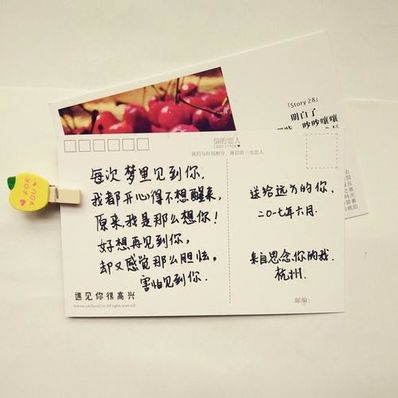 「Story 28」
明白了
吵吵嚷嚷
每次梦里见到你,
我都开心得不想醒来,
原来我是那么想你!
好想再见到你,
却又感觉那么胆怯。
害怕见到你.
遇见你很高兴
送给远方的你.
二〇一七年六月.
来自思念你的我.
杭州.
邮编:
FOR
YOU